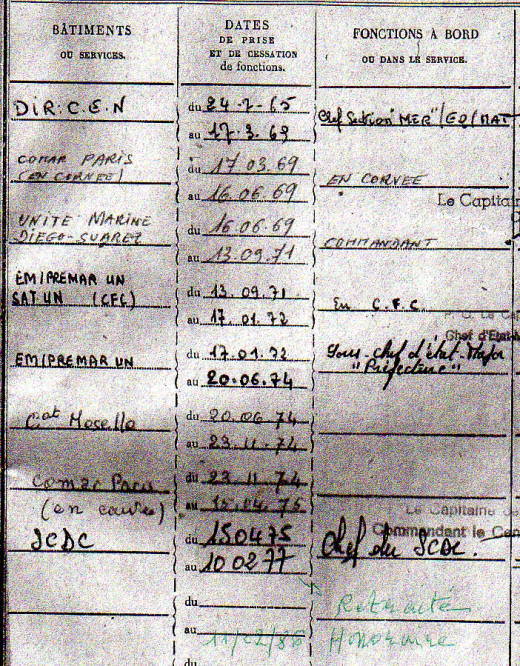 BÂTIMENTS
OU SERVICES.
DATES
DE PRISE
ET DE CESSATION
de fonctions.
FONCTIONS À BORD
OU DANS LE SERVICE.
DIR.C.E.N
du 24-7-65
au 17.3.69
Chef Section "MER"/EQ/MAT
COMAR PARIS
(EN CORVEE)
du 17 03.69
au 16.06.69
EN CORVEE
Le Capitai
UNITE MARINE
DIEGO-SUAREZ
du 16.06.69
au 13.09.71
COMMANDANT
EM/PREMAR UN
SAT UN (CFC)
du 13.09.71
au 17.01.72
En C.F.C.
Chef d'Etat-M
EM/PREMAR UN
du 17.01.72
au 20.06.74
Sous-chef d'état-Major
"Préfecture"
Cat Moselle
du 20.06 74
au 23.11.74
Comar Paris
(en corvée)
du 23 11 74
au 15.04.75
Le Capitaine de
Commandant le Cen
SCDC
du 150475
au 10 02 77
Chef du SCDC.
du
au 11/02/86
Retraité
Honoraire
du